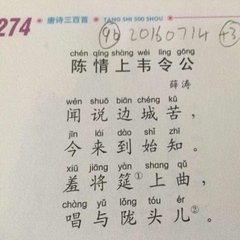 274
唐诗三百首 · TANG SHI 300 SHOU
20160714
chén qíng shàng wéi lìng gōng
陈情上韦令公
薛涛
wén shuō biān chéng kǔ
闻说边城苦,
jīn lái dào shǐ zhī
今来到始知。
xiū jiāng yán shang qǔ
羞将筵①上曲,
chàng yǔ lǒng tóu ér
唱与陇头儿②。